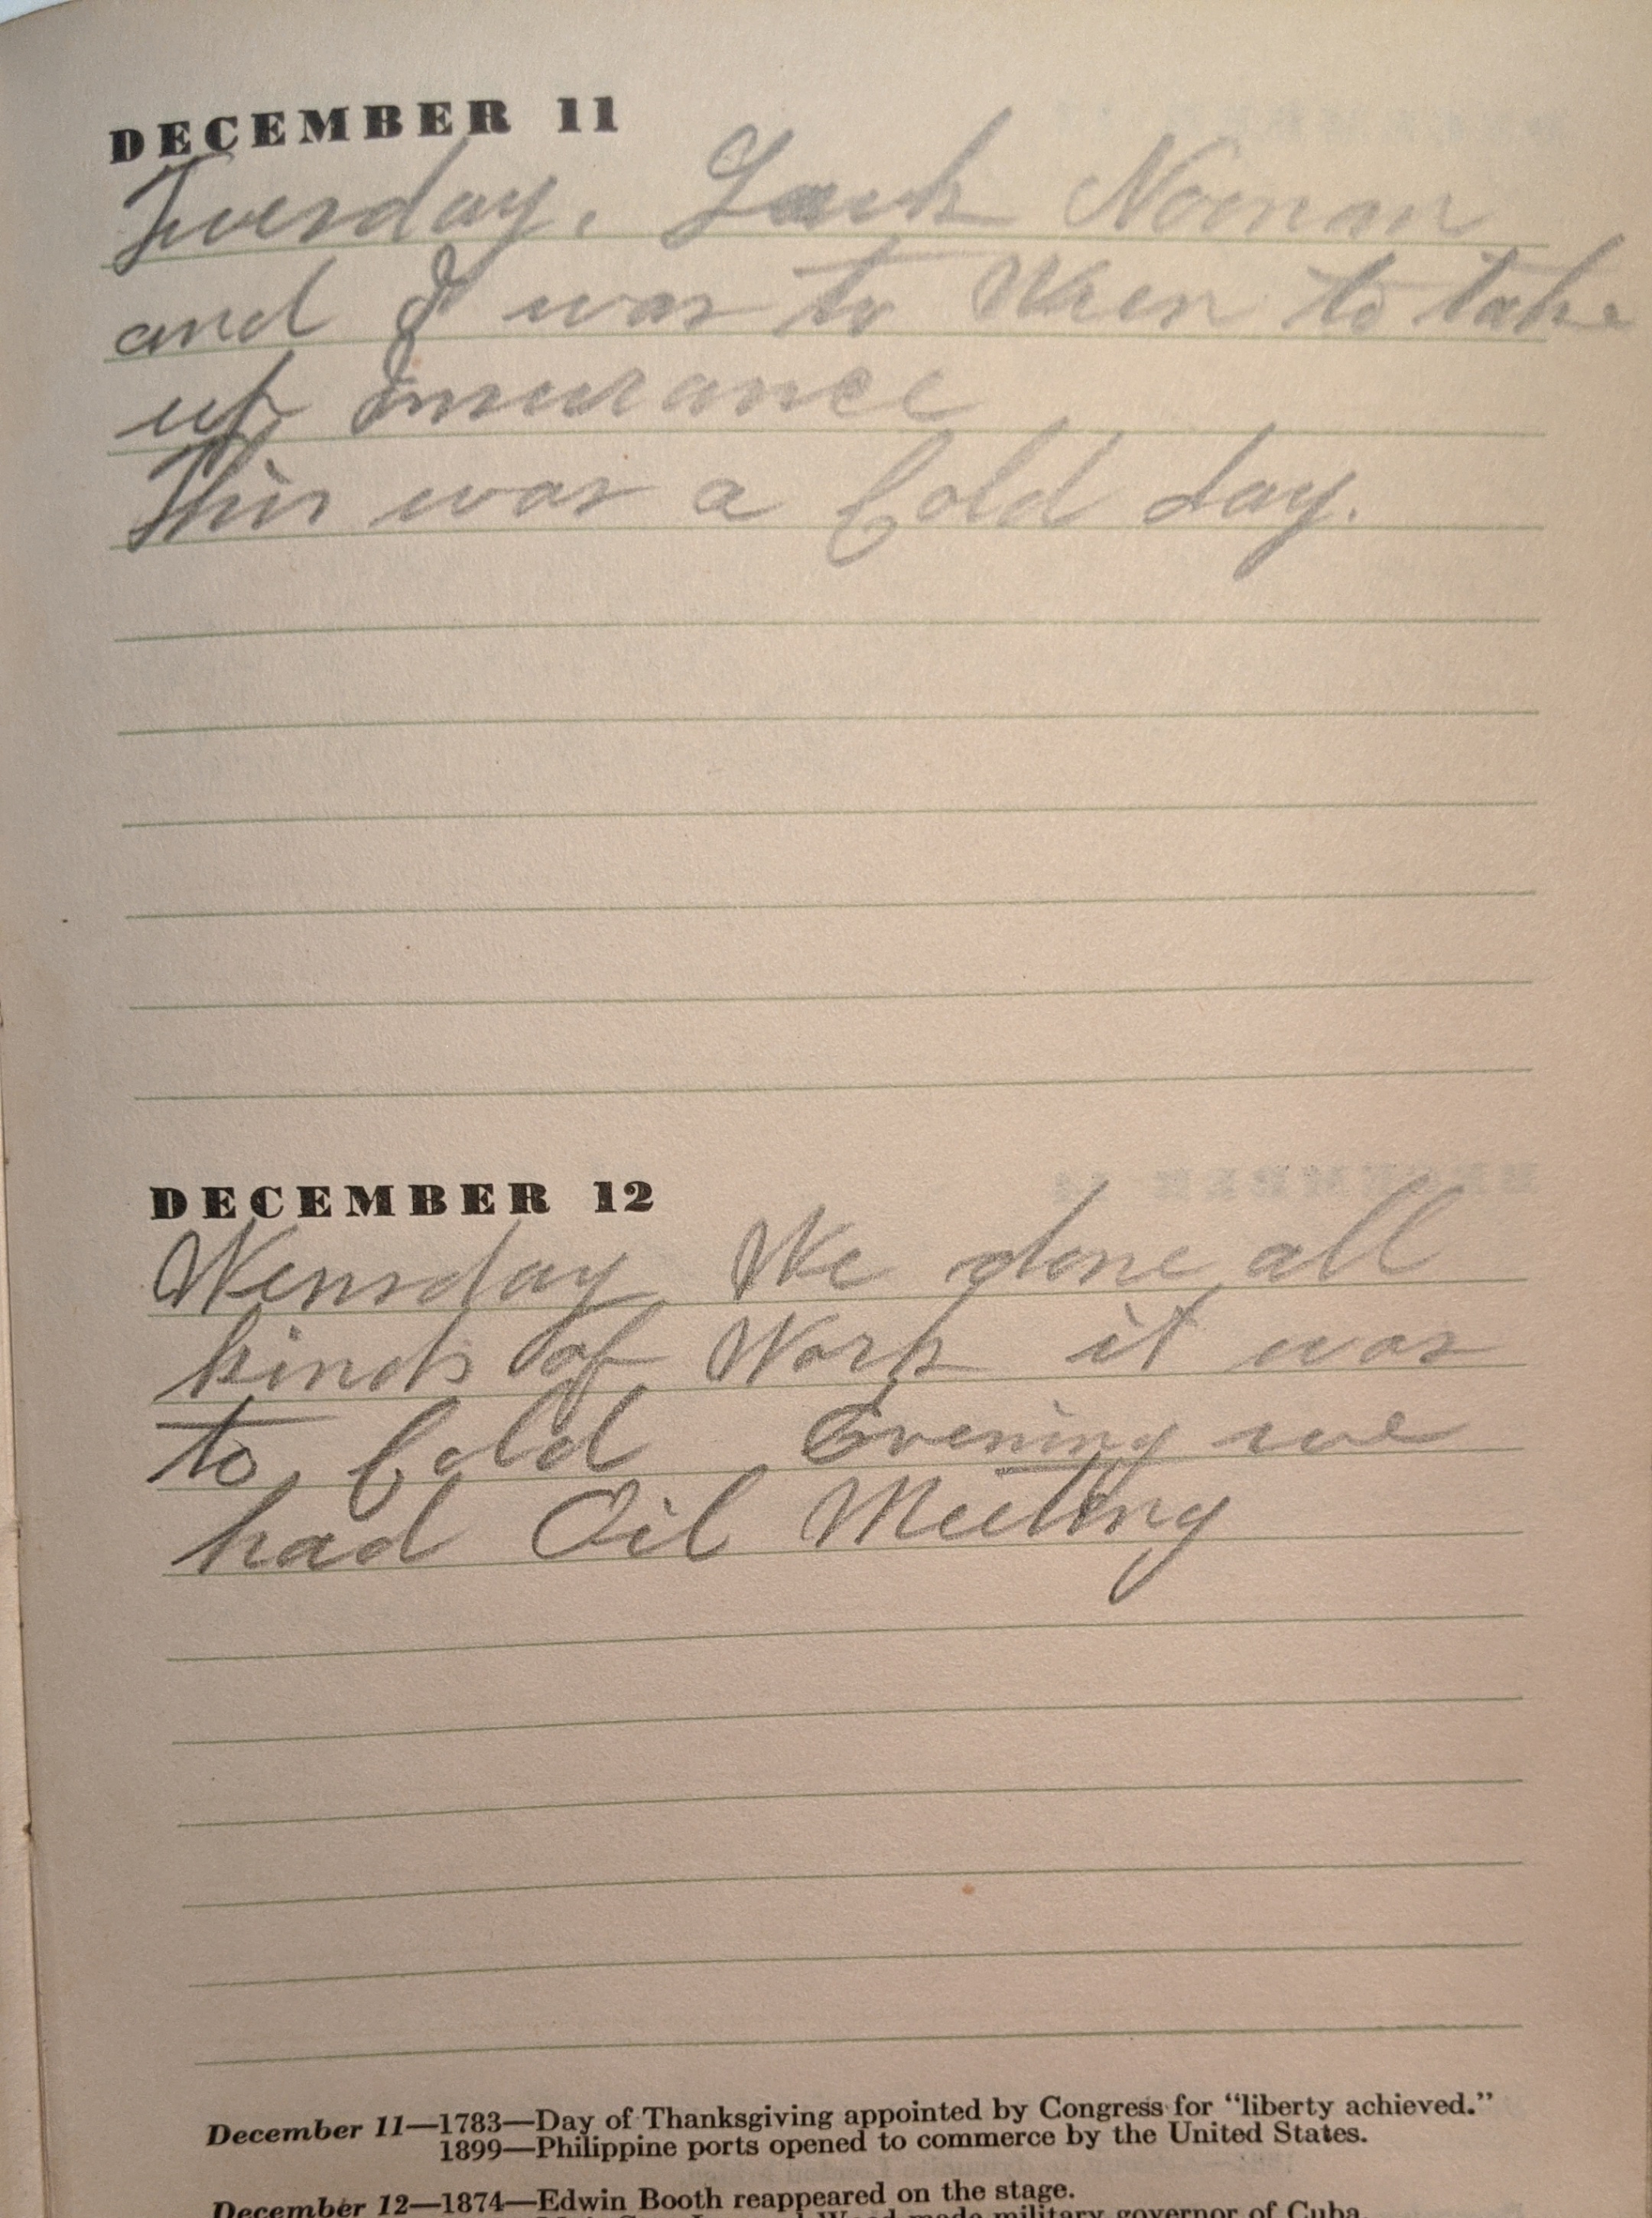 DECEMBER 11
Tuesday. Jack Noonan
and I was to Wren to take
up Insurance
This was a Cold day.
DECEMBER 12
Wensday We done all
kinds of Work it was
to Cold Evening we
had Oil Meeting
December 11—1783—Day of Thanksgiving appointed by Congress for “liberty achieved.”
1899—Philippine ports opened to commerce by the United States.
December 12—1874—Edwin Booth reappeared on the stage.
Wood made military governor of Cuba.